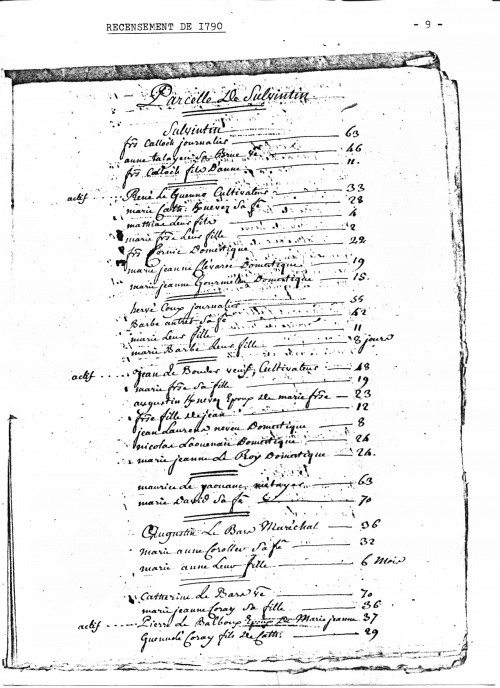 RECENSEMENT DE 1790 - 9 -
Parcelle De Sulvintin
Sulvintin
frs Calloch journalier 63
anne talayen sa femme 46
frs Calloch fils D'anne 11
actif René Le Guenno Cultivateur 33
marie Cath: sa fe 28
mathias leur fils 4
marie frse leur fille 2
frs Cornic Domestique 22
marie jeanne Clévarec Domestique 19
marie jeanne Gourmelen Domestique 15
hervé Coux journalier 55
Barbe autret sa fe 42
marie leur fille 11
marie Barbe leur fille 8 jours
actif jean Le Bouder veuf, Cultivateur 48
marie frse sa fille 19
augustin Epoux De marie frse 23
frse fille De jean 12
jean Laurent neveu Domestique 8
nicolas Laouenan Domestique 24
marie jeanne Le Roy Domestique 24
maurice Le yaouanc métayer 63
marie David sa fe 70
Augustin Le Bars Maréchal 36
marie anne Coroller sa fe 32
marie anne leur fille 6 Mois
Catherine Le Bars ve 70
marie jeanne Coray sa fille 36
actif Pierre Le Balbous Epoux De Marie jeanne 37
Guennolé Coray fils De Cath: 29